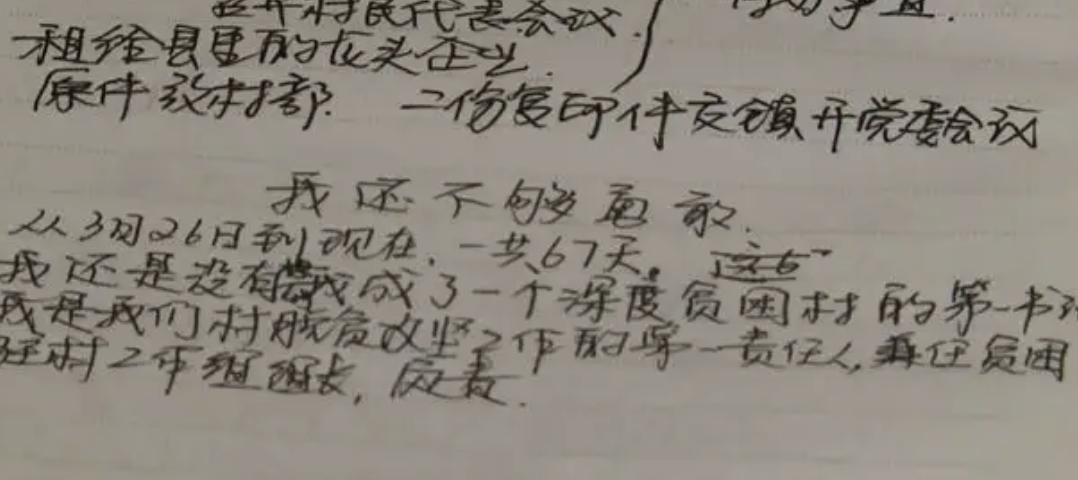 召开村民代表会议.
租给县里的龙头企业.
原件放村部. 二份复印件交镇开党委会议
我还不够勇敢.
从3月26日到现在,一共67天。这6
我还是没有 成了一个深度贫困村的第一书
我是我们村脱贫攻坚工作的第一责任人,兼任贫困
驻村工作组组长,